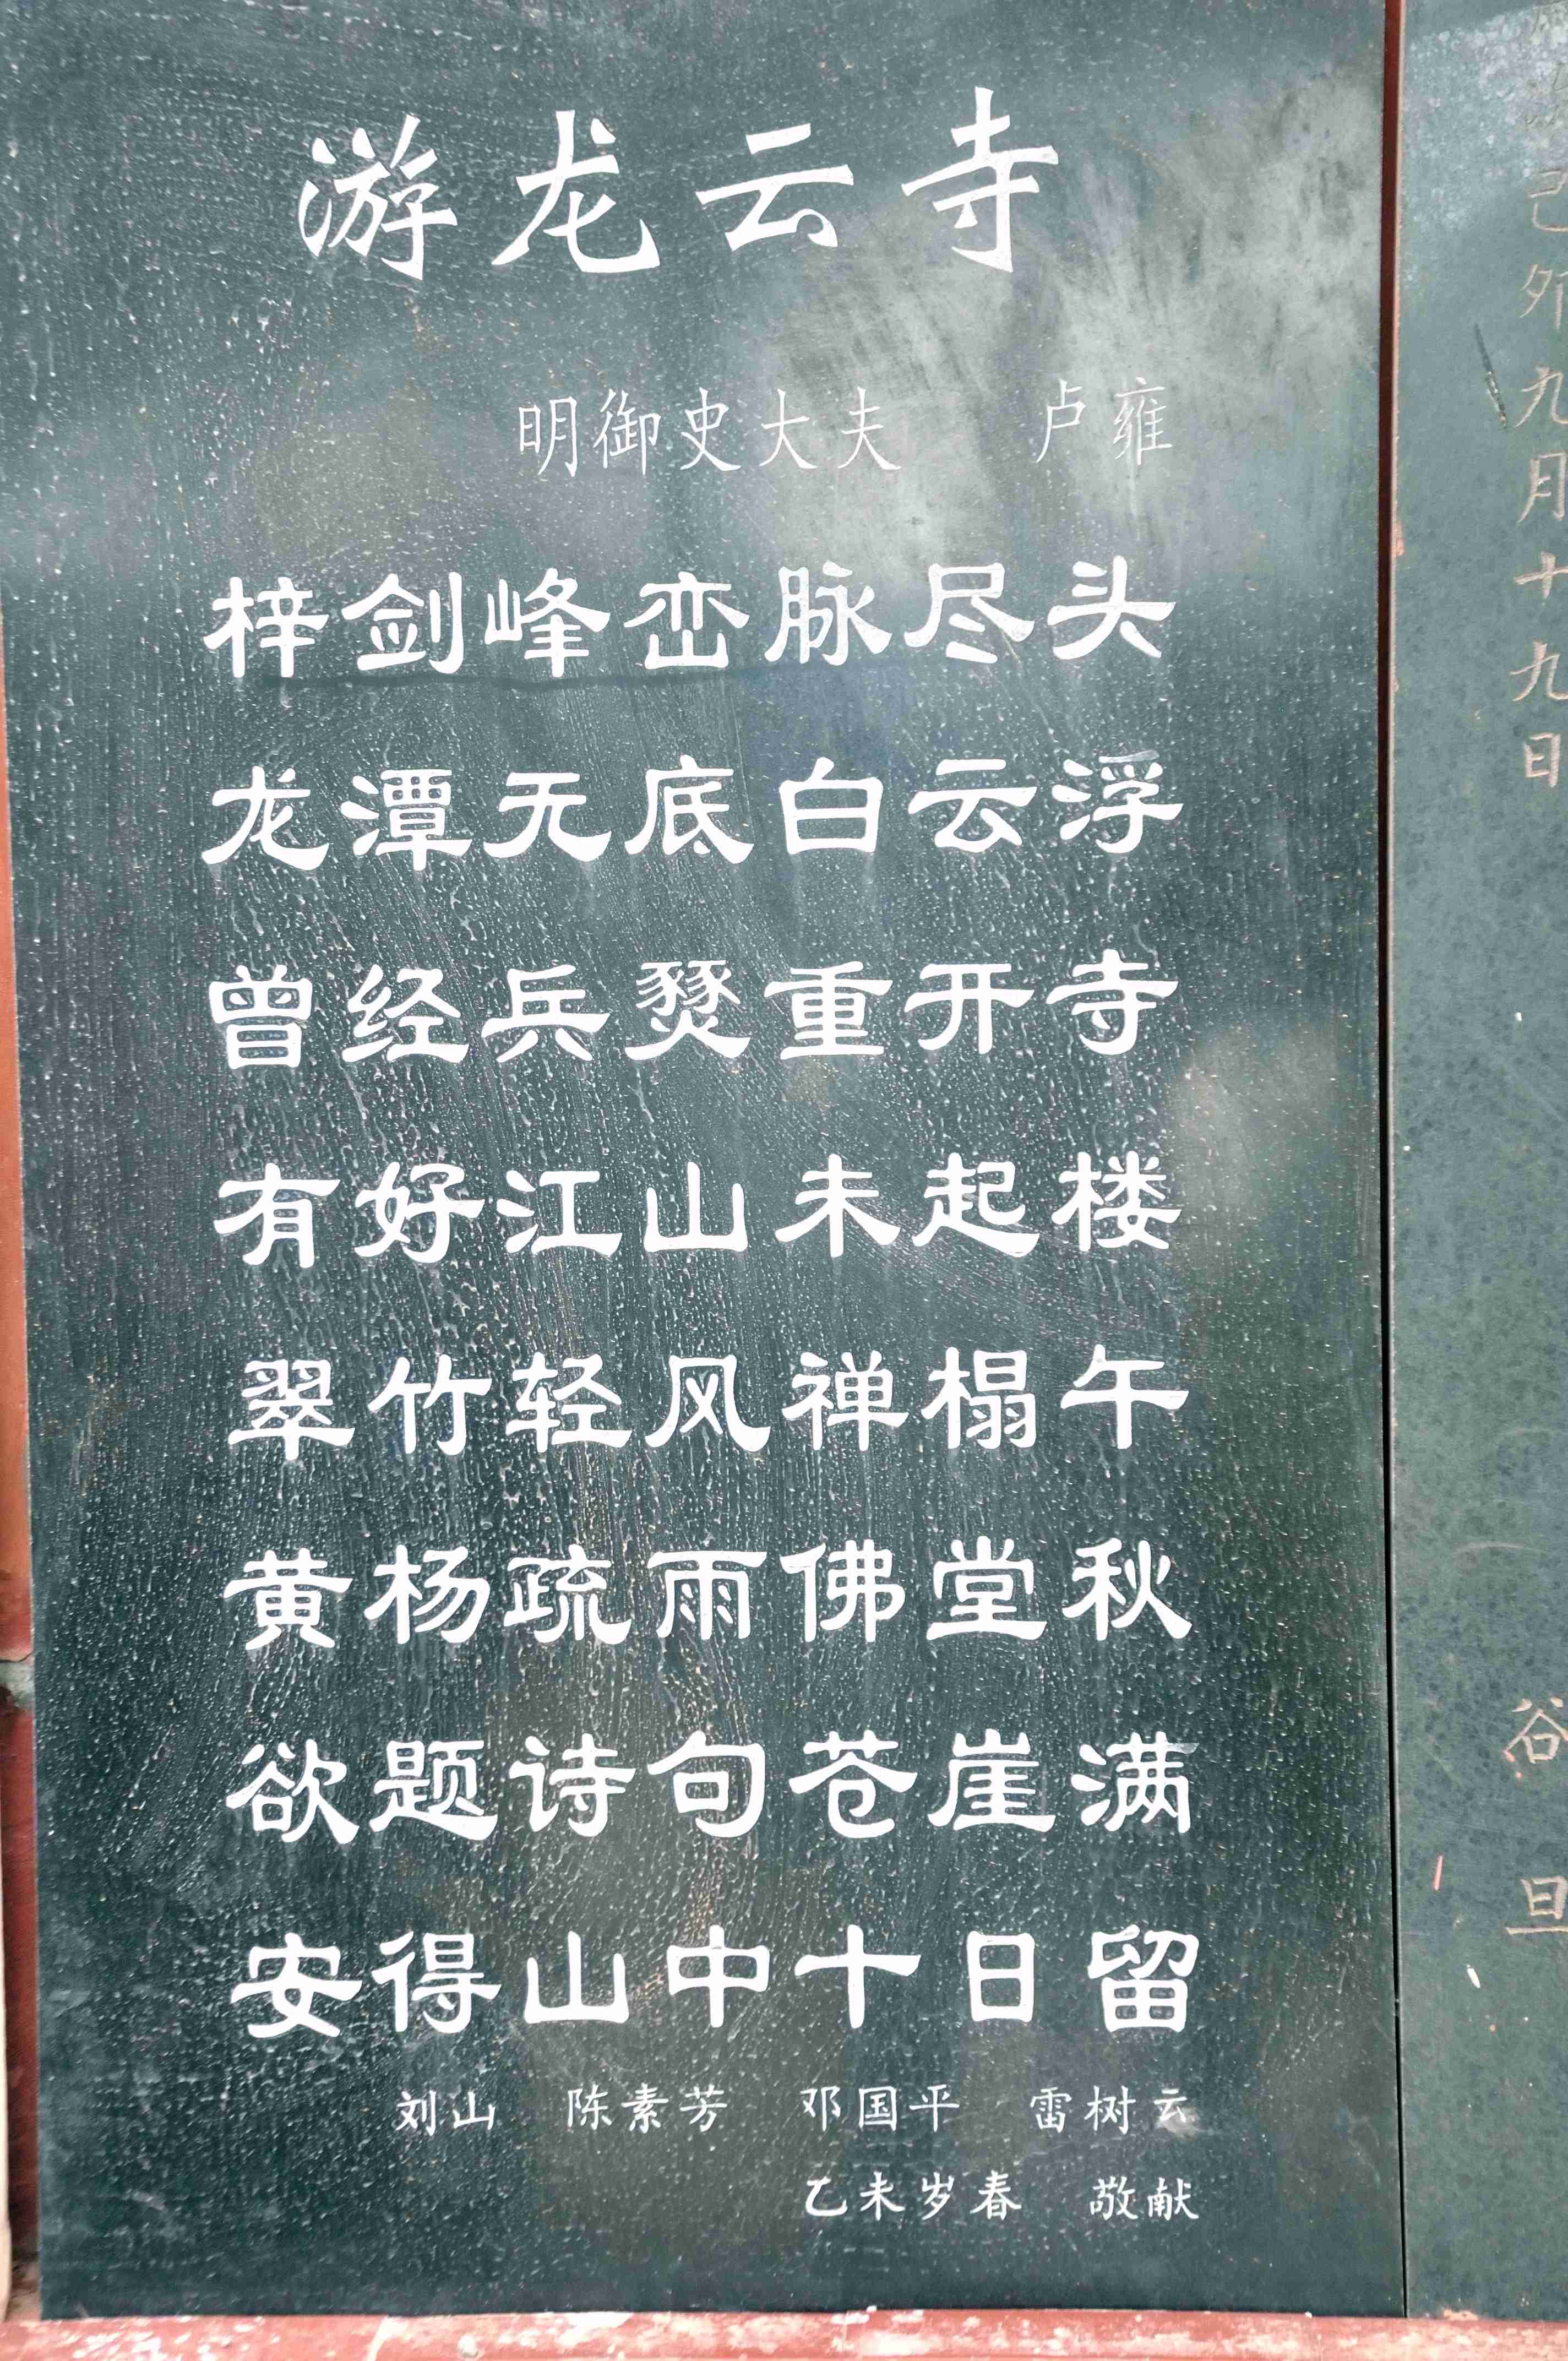 游龙云寺
明御史大夫 卢雍
梓剑峰峦脉尽头
龙潭无底白云浮
曾经兵燹重开寺
有好江山未起楼
翠竹轻风禅榻午
黄杨疏雨佛堂秋
欲题诗句苍崖满
安得山中十日留
刘山 陈素芳 邓国平 雷树云
乙未岁春 敬献
己夘九月十九日
谷旦